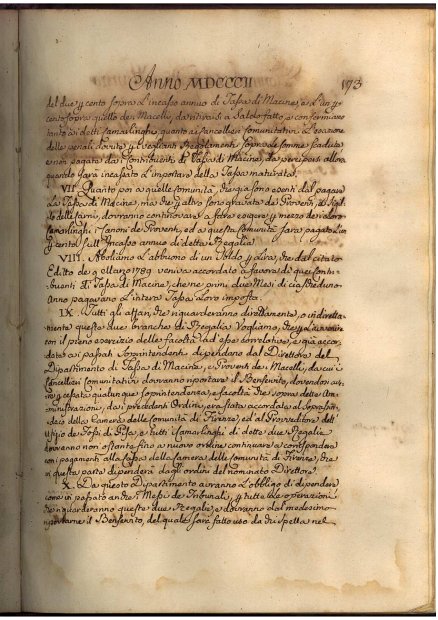 Anno MDCCCII 173
del due p cento sopra l'incasso annuo di Tassa di Macine, e l'un p
cento sopra quello de' Macelli, da ritirarsi a Saldo fatto, e confermiamo
tanto ai detti Camarlinghi, quanto ai Cancellieri Comunitativi l'esazione
delle penali dovute p veglianti Regolamenti sopra le somme scadute
e non pagate da' Contribuenti di Tassa di Macine, da percipersi allora
quando sarà incassato l'importare della Tassa maturata.
VII. Quanto poi a quelle Comunità, che già sono esenti dal pagare
la Tassa di Macine, ma che p altro sono gravate de' Proventi, e Sigil-
lo delle Carni, dovranno continovare a fare esigere p mezzo dei loro
Camarlinghi i Canoni de' Proventi, ed a queste Comunità sarà pagato l'un
p cento sull'Incasso annuo di detta Regalia.
VIII. Aboliamo l'abbuono di un Soldo p Lira, che dal citato
Editto de 9 Marzo 1789 veniva accordato a favore di quei Contri-
buenti di Tassa di Macine, che nei primi due Mesi di ciaschedun
Anno pagavano l'intera Tassa loro imposta.
IX. Tutti gli affari, che riguarderanno direttamente, o indiretta-
mente queste due branche di Regalia Vogliamo, che p l'avvenire
con il pieno esercizio delle facoltà ad esse correlative, e già accor-
date ai passati Soprintendenti dipendano dal Direttore del
Dipartimento di Tassa di Macine, e Proventi de' Macelli, da cui i
Cancellieri Comunitativi dovranno riportare il Benservito, dovendo avver-
si cessata qualunque soprintendenza, e facoltà che sopra dette Am-
ministrazioni, dai precedenti Ordini, era stata accordata al Soprassin-
daco della Camera delle Comunità di Firenze, ed al Provveditore dell'
Ufizio de' Fossi di Pisa, e tutti i Camarlinghi di dette due Regalie
dovranno non ostante fino a nuovo ordine continuare a corrispondere
con i pagamenti alla Cassa della Camera delle Comunità di Firenze, che
in questa parte dipenderà dagli ordini del nominato Direttore.
X. Da questo Dipartimento avranno l'obbligo di dipendere
come in passato anche i Messi de' Tribunali, p tutte le operazioni
che riguarderanno queste due Regalie, e dovranno dal medesimo
riportarne il Benservito, del quale sarà fatto uso da chi spetta nel